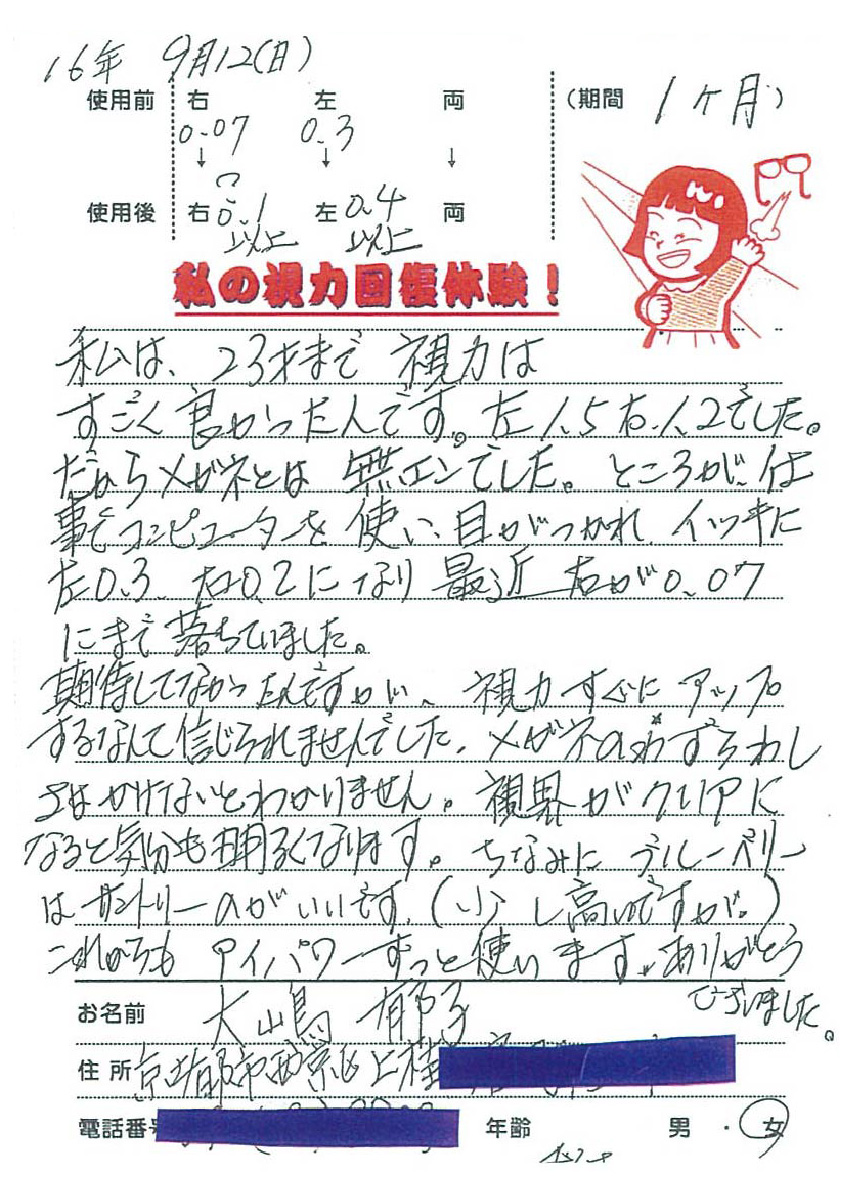 16年 9月12(日)
使用前 右 左 両 (期間 1ヶ月)
0.07 0.3
↓ ↓ ↓
使用後 右 0.1 左 0.4 両
以上 以上
私の視力回復体験！
私は、23才まで 視力は
すごく良かったんです。左1.5右.1.2でした。
だからメガネとは 無エンでした。ところが、仕
事でコンピューターを 使い、目がつかれ イッキに
左0.3、右0.2になり 最近 右が0.07
にまで 落ちていました。
期待してなかったんですが、視力すぐに アップ
するなんて信じられませんでした。メガネのわずらわし
さはかけてないとわかりません。視界がクリアに
なると気分も明るくなります。ちなみに ブルーベリー
はサントリーのがいいです。(少し高いですが。)
これからも アイパワーずっと使います。ありがとう
ございました。
お名前 大嶋 郁子
住所 京都市西京区上桂
電話番号 年齢 男・女